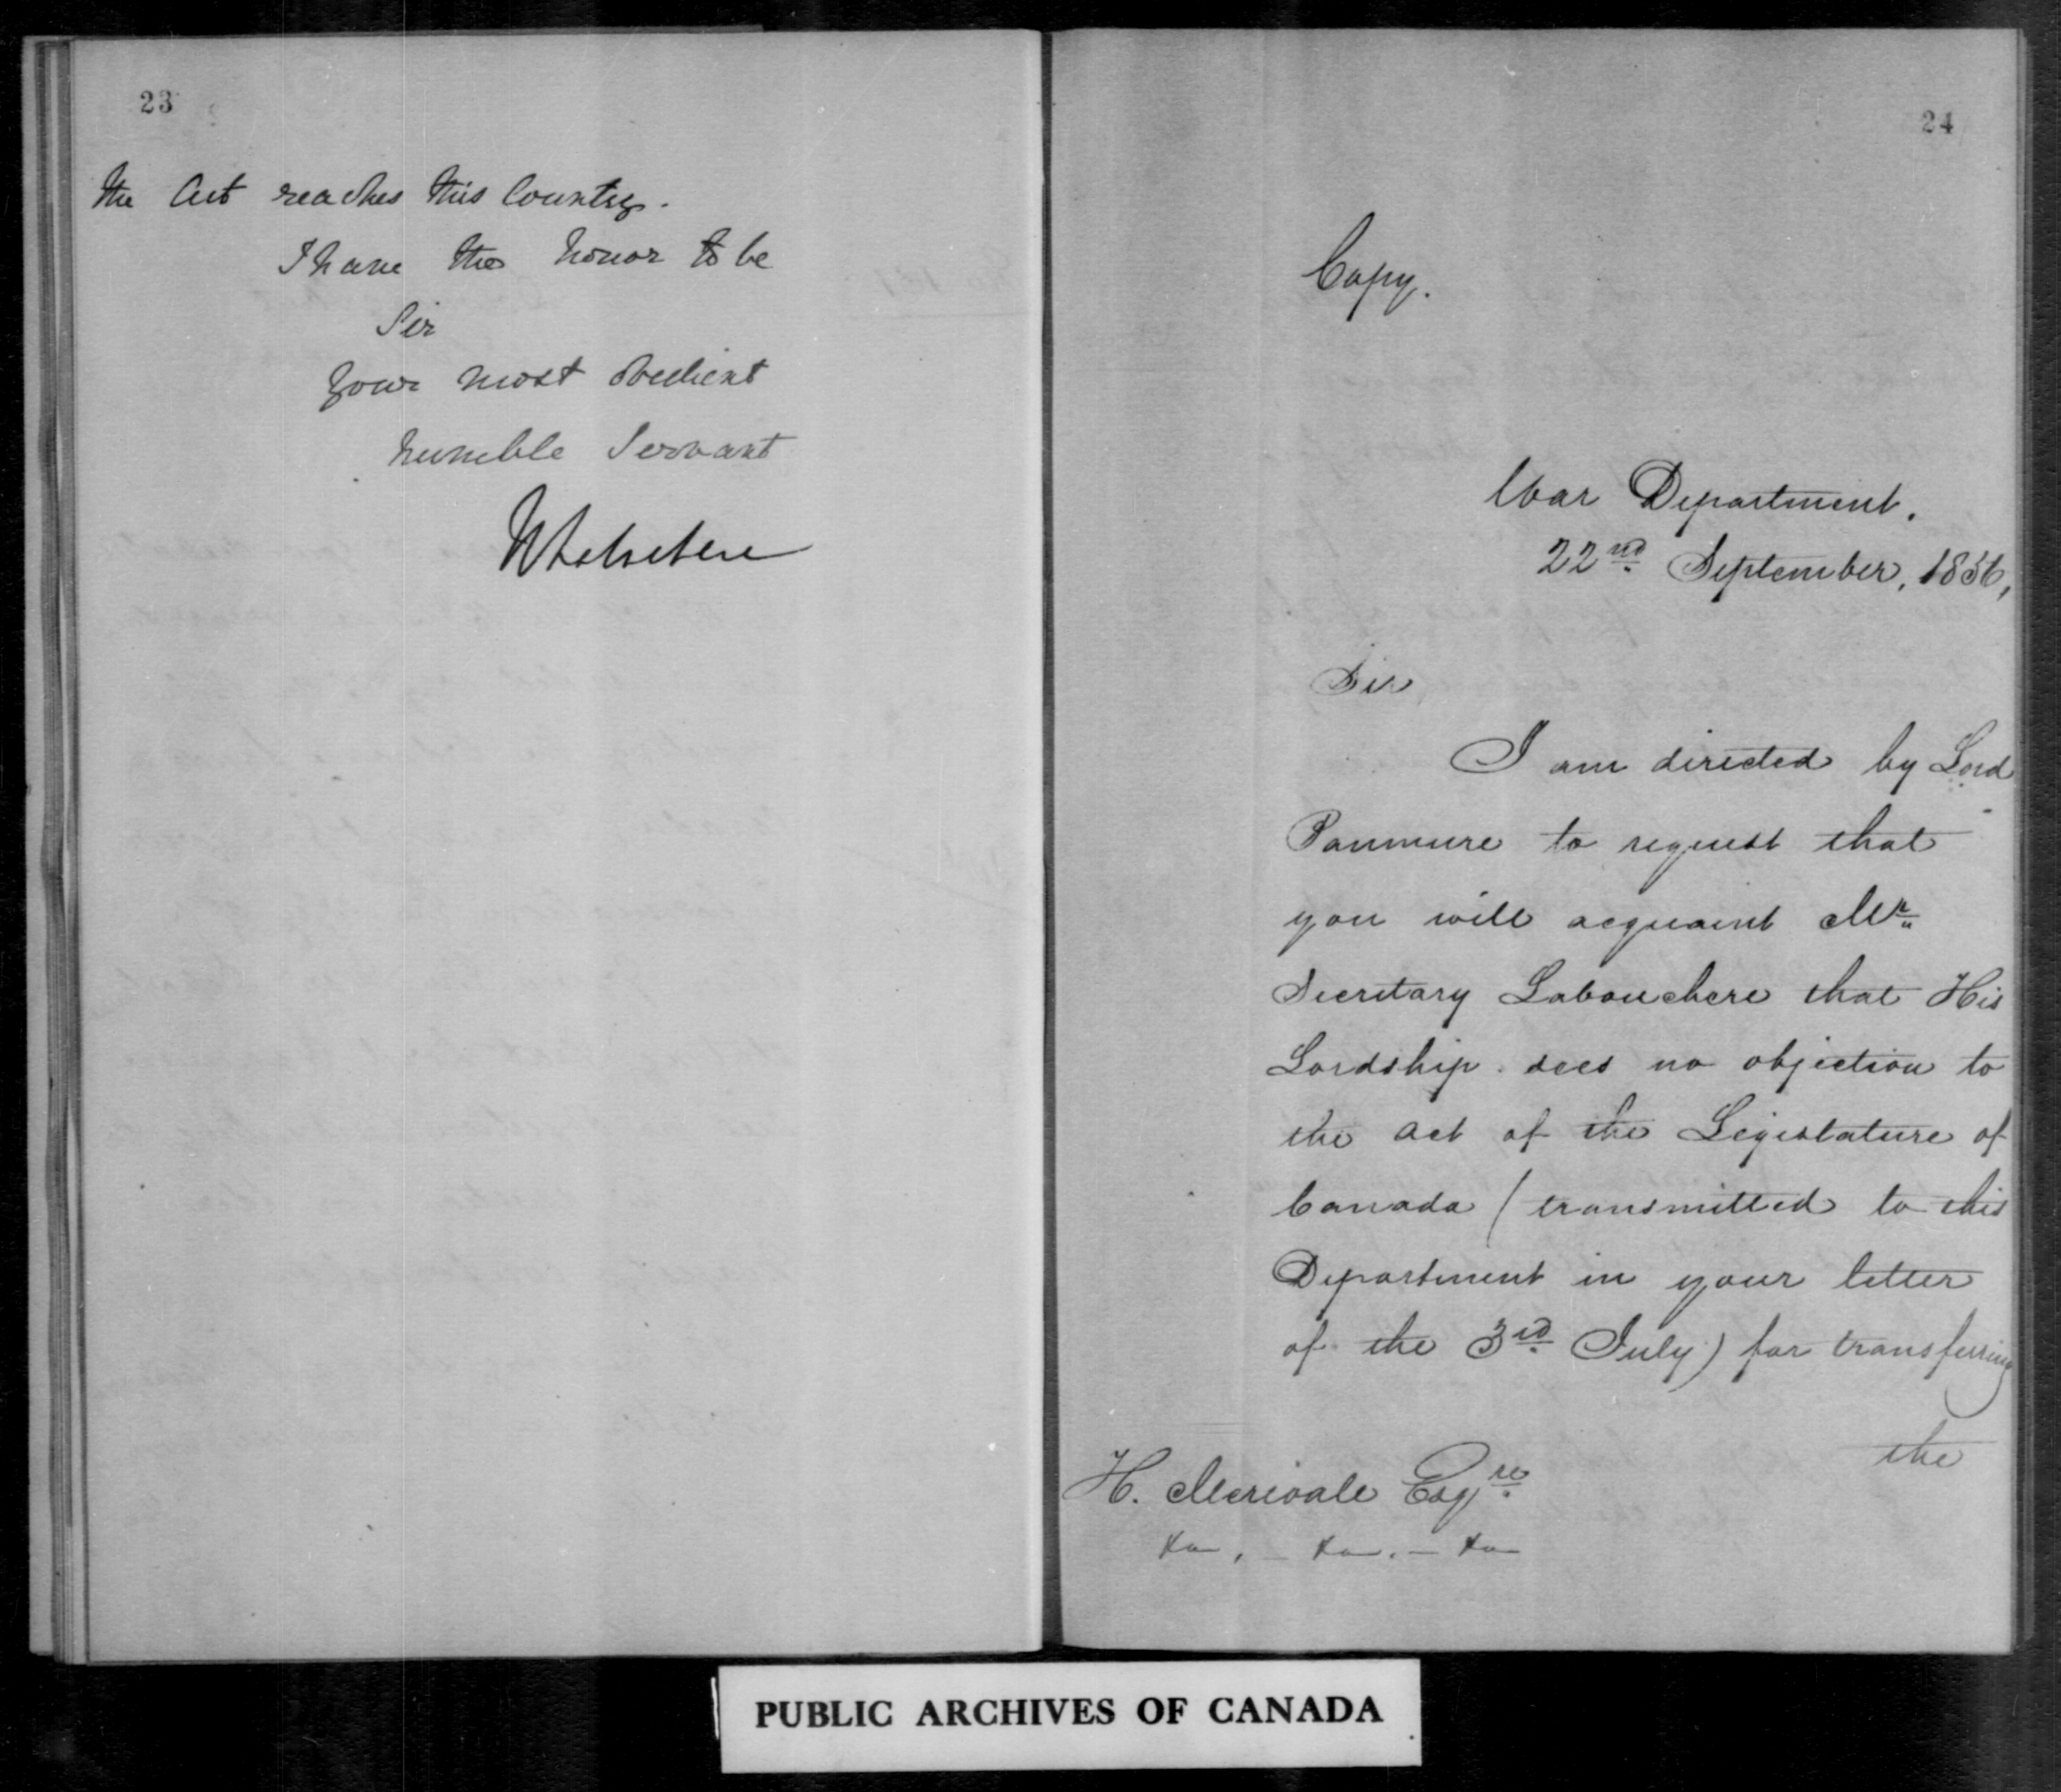 23
the Act reaches this Country.
I have the honor to be
Sir
Your most obedient
humble Servant
24
Copy.
War Department.
22nd September, 1856,
Sir
I am directed by Lord
Panmure to request that
you will acquaint Mr.
Secretary Labouchere that His
Lordship sees no objection to
the Act of the Legislature of
Canada (transmitted to this
Department in your letter
of the 3rd July) for transferring
the
H. Merivale Esqre.
&c, - &c. - &c
PUBLIC ARCHIVES OF CANADA